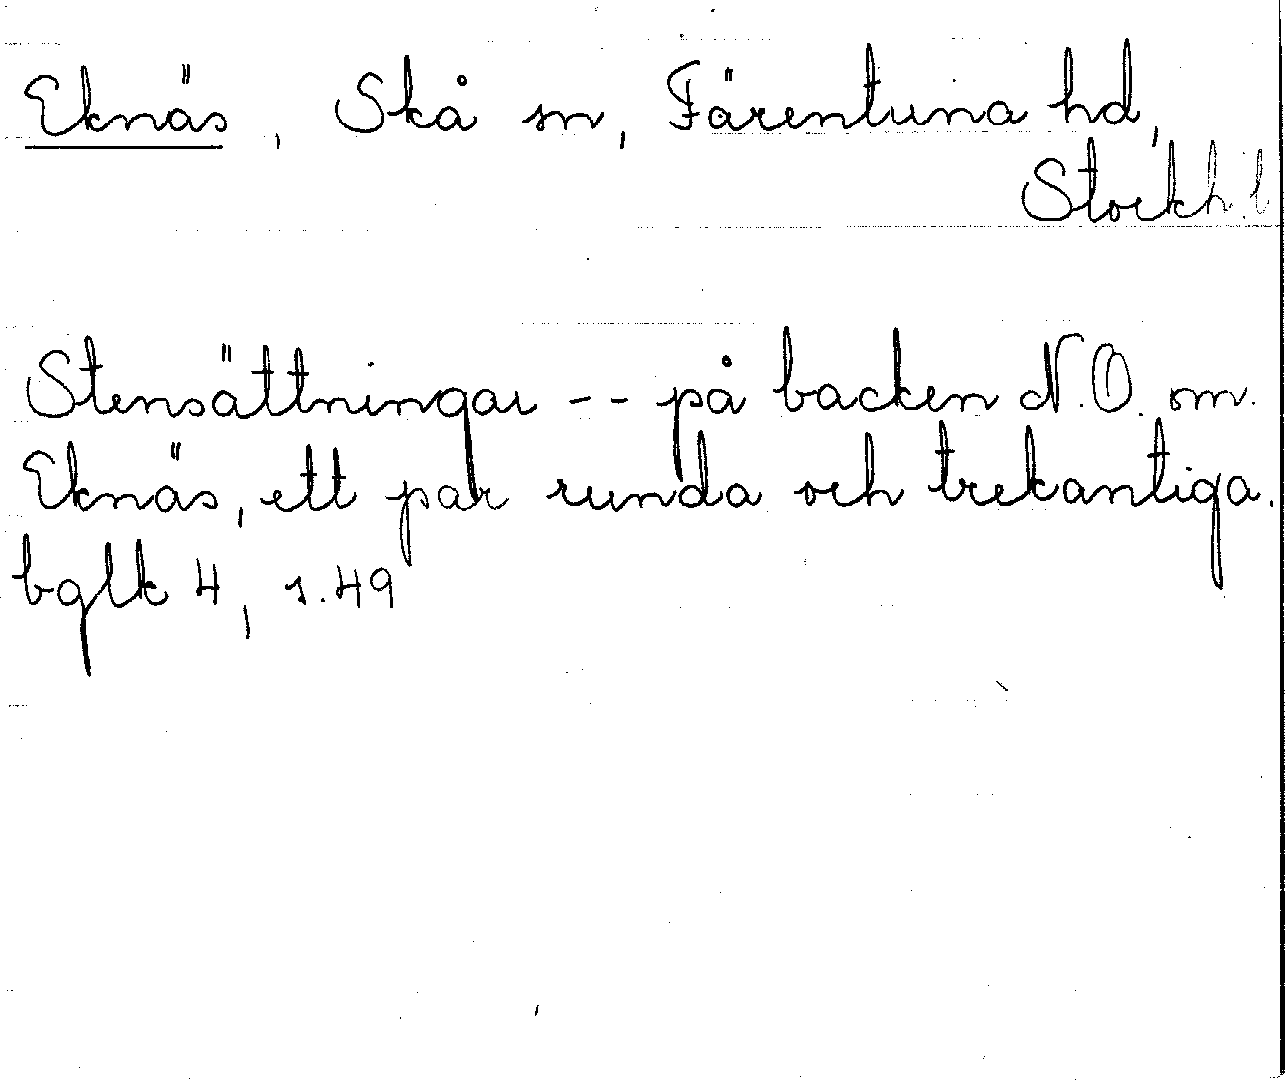 Eknäs, Skå sn, Färentuna hd,
Stockh. l
Stensättningar -- på backen N.O. om.
Eknäs, ett par runda och trekantiga.
bglk 4, s. 49